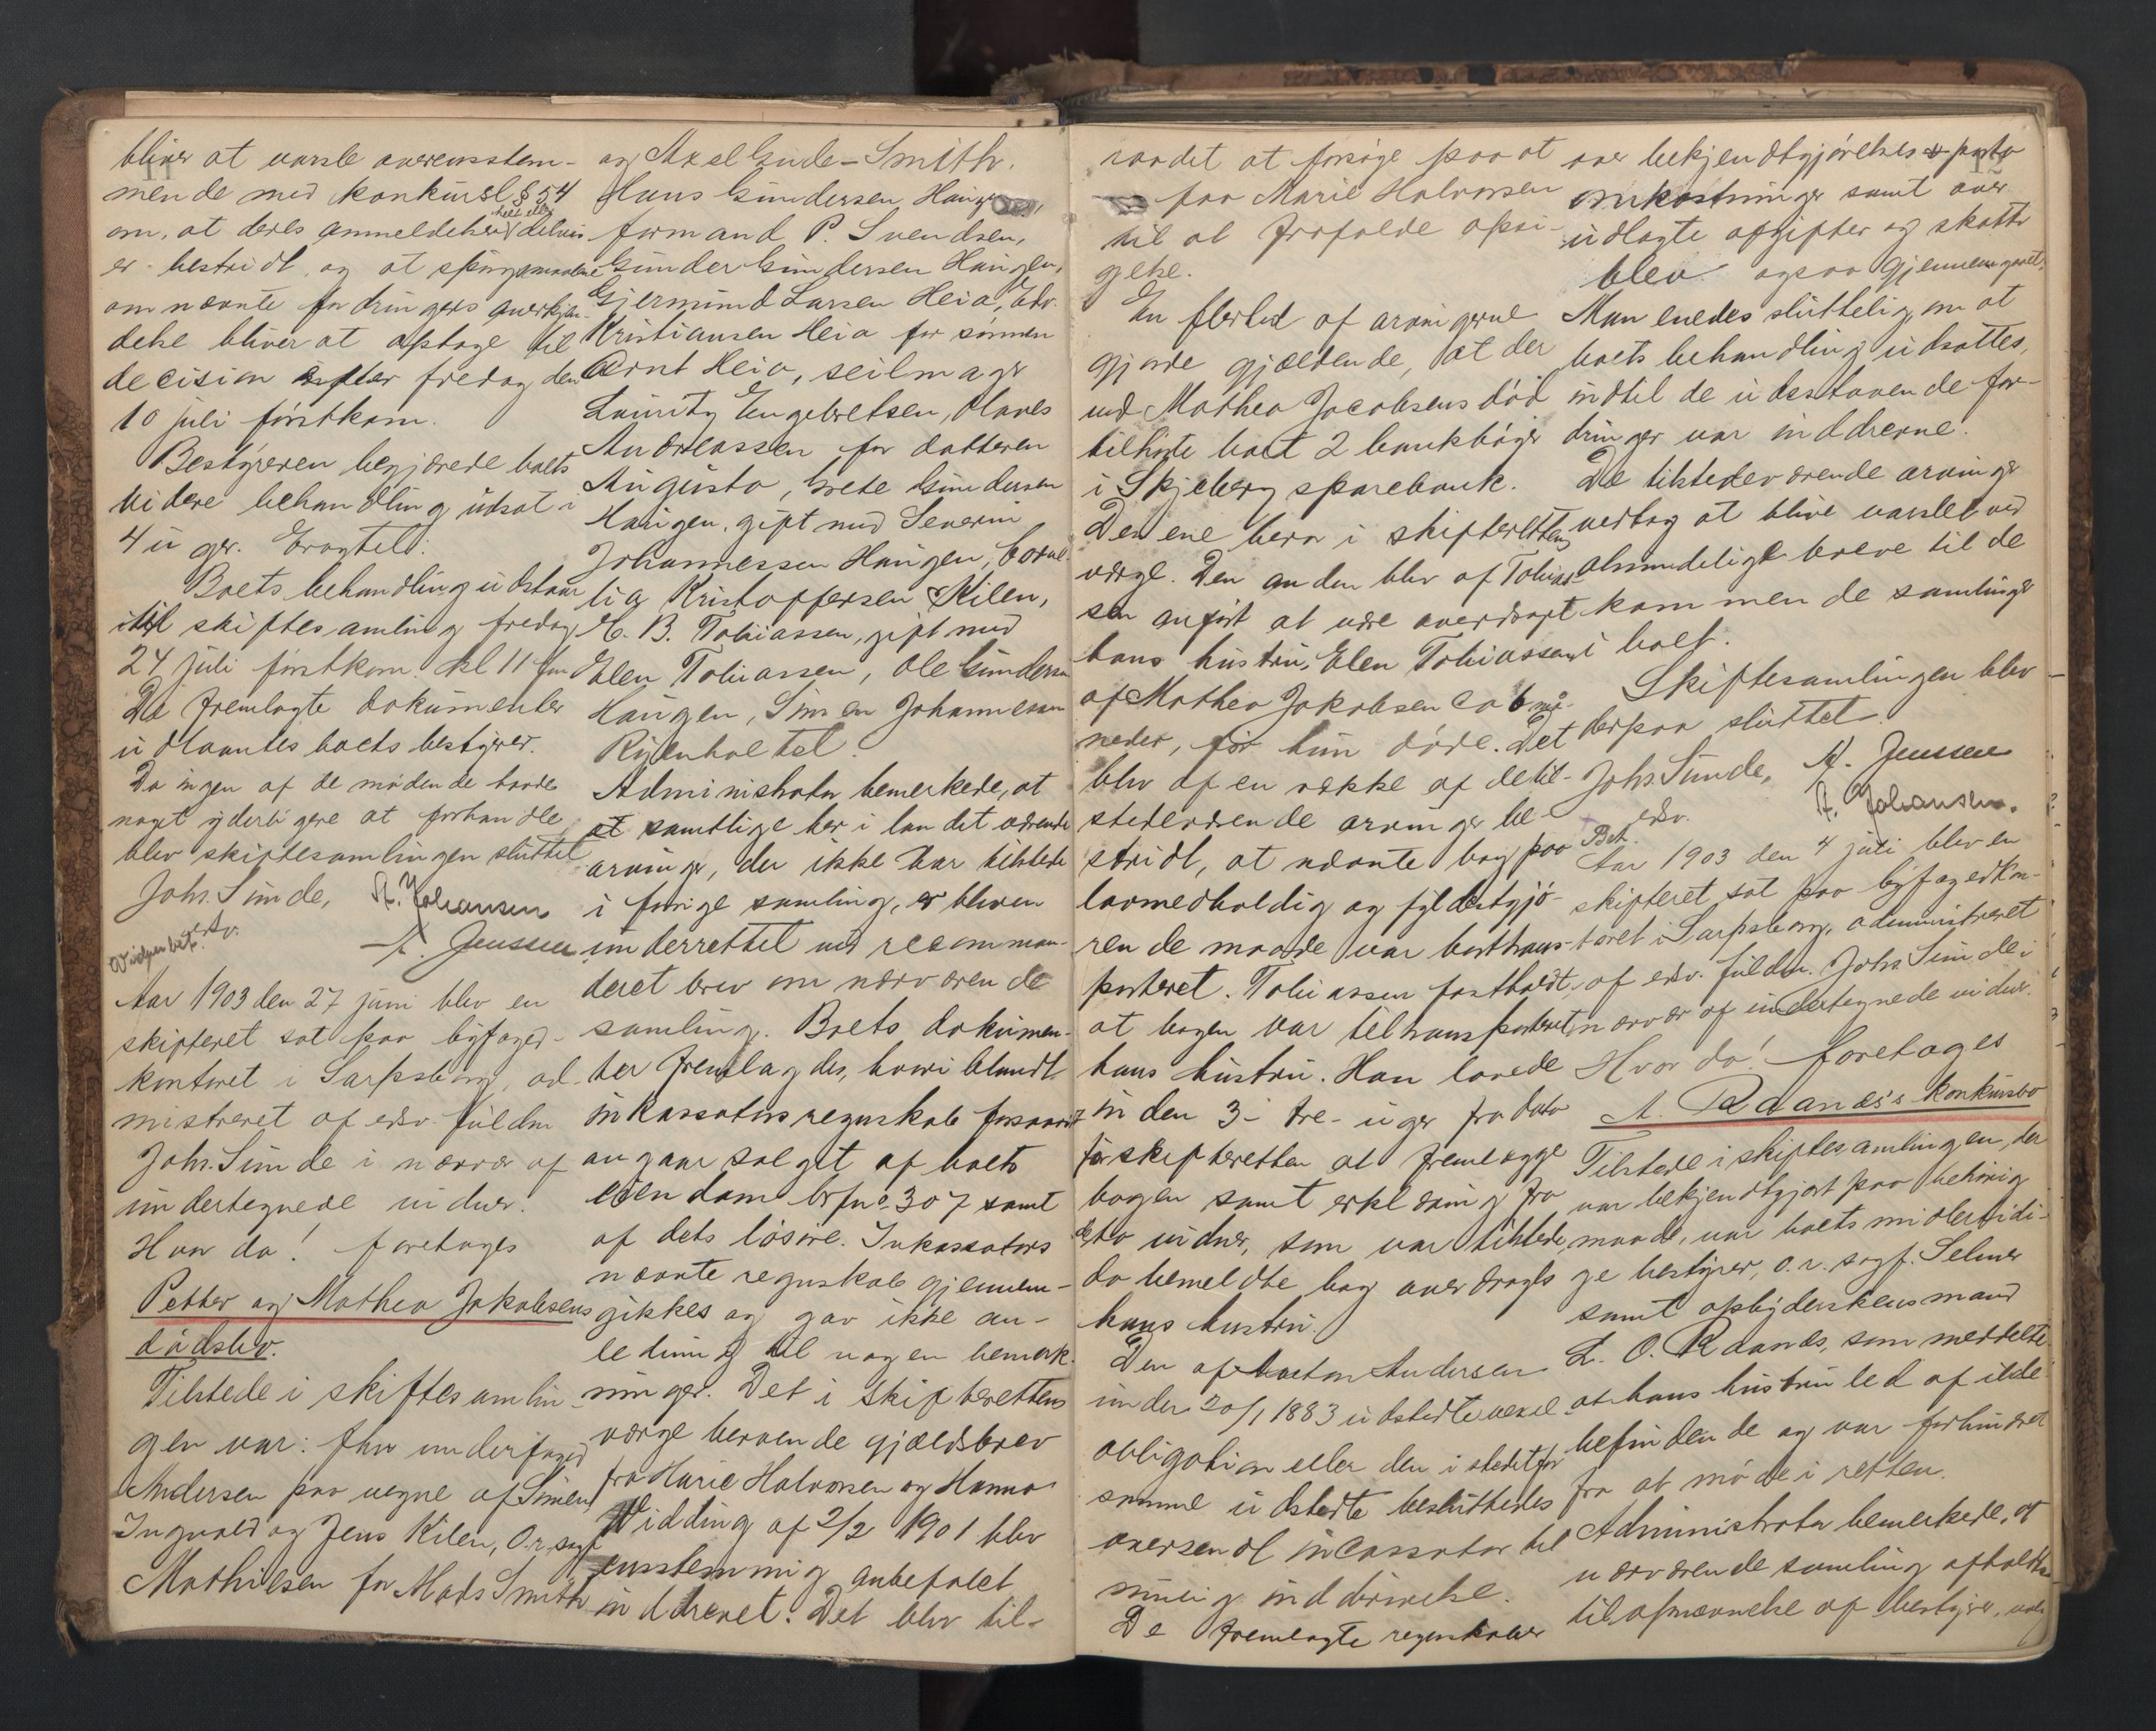 11
bliver at varsle overensstem-
mende med konkursl § 54
om, at deres anmeldelser helt eller delvis
er bestridt, og at spørgsmaalene
om nævnte fordringers anerkjen-
delse bliver at optage til
decision efter fredag den
10 juli førstkom.
Bestyreren begjærede boets
videre behandling udsat i
4 uger. Eragtet:
Boets behandling udstaar
til skiftesamling fredag
24 juli førstkom. kl 11 fm
De fremlagte dokumenter
udlaantes boets bestyrer.
Da ingen af de mødende havde
noget yderligere at forhandle,
blev skiftesamlingen sluttet
Johs. Sunde, A. Johansen
edsv.
A. Jenssen
Aar 1903 den 27 juni blev en
skifteret sat paa byfoged-
kontoret i Sarpsborg, ad-
mistreret af edsv. fuldm
Johs. Sunde i nærvær af
undertegnede vidner.
Hvor da! foretoges
Petter og Mathea Jakobsens
dødsbo.
Tilstede i skiftesamlin-
gen var: fhv underfoged
Andersen paa vegne af Simen,
Ingvald og Jens Kilen, O.r.sagf
Mathiesen for Mads Smith
og Axel Gude-Smith.
Hans Gundersen Haugen,
formand P. Svendsen,
Gunder Gundersen Haugen,
Gjermund Larsen Heia, Edv.
Kristiansen Heia for sønnen
Arnt Heia, seilmager
Lauritz Engebretsen, Olaves
Andreassen for datteren
Augusta, Grete Gundersen
Haugen, gift med Severin
Johannessen Haugen, Corne-
lia Kristoffersen Kilen,
C. B. Tobiassen, gift med
Elen Tobiassen, Ole Gundersen
Haugen, Simen Johannesen
Administrator bemerkede, at
at samtlige her i landet værende
arvinger, der ikke var tilstede
i forrige samling, er bleven
underrettet ved recomman-
deret brev om nærværende
samling. Boets dokumen-
ter fremlagdes, hvori blandt
inkassators regnskab forsaavidt
angaar salget af boets
eiendom brfno. 307 samt
af dets løsøre. Inkassators
nævnte regnskab gjennem-
gikkes og gav ikke an-
ledning til nogen bemerk-
ninger. Det i skifterettens
værge beroende gjældsbrev
fra Marie Halvorsen og Hanna
Widding af 2/2 1901 blev
enstemmig anbefalet
inddrevet. Det blev til-
12
raadet at forsøge paa at
faa Marie Halvorsen
til at frafalde opsi-
gelse.
En flerhed af arvingerne
gjorde gjældende, at der
ved Mathea Jacobsens død
tilhørte boet 2 bankbøger
i Skjeberg sparebank.
Den ene bero i skifterettens
værge. Den anden blev af Tobias-
sen anført at være overdraget
hans hustru, Elen Tobiassen,
af Mathea Jakobsen ca 6 må-
neder, før hun døde. Det
blev af en række af de til-
stedeværende arvinger be-
stridt, at nævnte bog paa
lovmedholdig og fyldestgjø-
rende maade var borttrans-
porteret. Tobiassen fastholdt,
at bogen var tiltransporteret
hans hustru. Han lovede
inden 3- tre- uger fra dato
for skifteretten at fremlægge
bogen samt erklæring fra
de to vidner, som var tilstede,
da bemeldte bog overdroges
hans hustru.
Den af Andersen
under 20/1 1883 udstedte vexel-
obligation eller den i stedet for
samme udstedte besluttedes
oversendt incassator til
mulig inddrivelse.
De fremlagte regnskaber
over bekjendtgjørelses & porto
omkostninger samt over
udlagte afgifter og skatter
blev ogsaa gjennemgaaet.
Man enedes sluttelig om at
boets behandling udsattes,
indtil de udestaaende for-
dringer var inddrevne.
De tilstedeværende arvinger
vedtog at blive varslet ved
almindelige breve til de
kommende samlinger
i boet.
Skiftesamlingen blev
derpaa sluttet.
Johs. Sunde, A. Jenssen
edsv. A. Johansen.
Bet.
Aar 1903 den 4 juli blev en
skifteret sat paa byfogedkon-
toret i Sarpsborg, administreret
af edsv. fuldm. Johs. Sunde i
nærvær af undertegnede vidner.
Hvor da! foretoges
A. Raanæs's konkursbo
Tilstede i skiftesamlingen, der
var bekjendtgjort paa behørig
maade, var boets midlertidi-
ge bestyrer, o.r. sagf. Selmer
samt opbyderskens mand
L. O. Raanæs, som meddelte
at hans hustru led af ilde-
befindende og var forhindret
fra at møde i retten.
Administrator bemerkede, at
nærværende samling afholdtes
til opnævnelse af bestyrer, valg